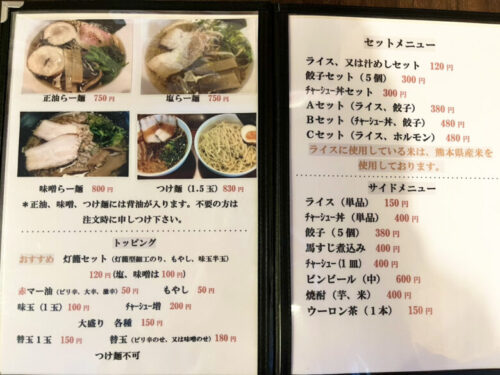 正油らー麺 750円
塩らー麺 750円
味噌らー麺 800円
つけ麺（1.5玉）830円
＊正油、味噌、つけ麺には背油が入ります。不要の方は
注文時に申しつけ下さい。
トッピング
おすすめ 灯籠セット（灯籠型細工のり、もやし、味玉半玉）
120円（塩、味噌は100円）
赤マー油（ピリ辛、大辛、激辛）50円 もやし 50円
味玉（1玉）100円 チャーシュー増 200円
大盛り 各種 150円
替玉1玉 150円 替玉（ピリ辛のせ、又は味噌のせ）180円
つけ麺不可
セットメニュー
ライス、又は汁めしセット 120円
餃子セット（5個）300円
チャーシュー丼セット 300円
Aセット（ライス、餃子）380円
Bセット（チャーシュー丼、餃子）480円
Cセット（ライス、ホルモン）480円
ライスに使用している米は、熊本県産米を
使用しております。
サイドメニュー
ライス（単品）150円
チャーシュー丼（単品）400円
餃子（5個）380円
馬すじ煮込み 400円
チャーシュー（1皿）400円
ビンビール（中）600円
焼酎（芋、米）400円
ウーロン茶（1本）150円